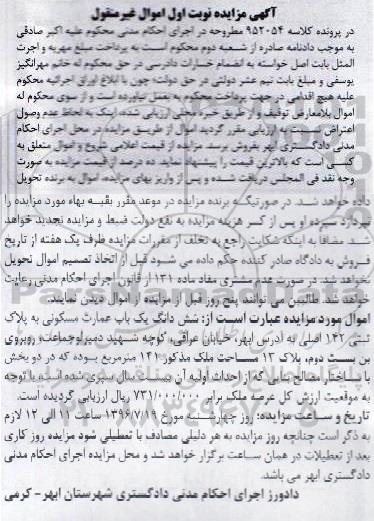 آگهی مزایده نوبت اول اموال غیرمنقول
در پرونده کلاسه ۹۵۲۰۵۴ مطروحه در اجرای احکام مدنی محکوم علیه اکبر صادقی
به موجب دادنامه صادره از شعبه دوم محکوم است به پرداخت مبلغ مهریه و اجرت
المثل بابت اصل خواسته به انضمام خسارات دادرسی در حق محکوم له خانم مهرانگیز
یوسفی و مبلغ بابت نیم عشر دولتی در حق دولت؛ چون با ابلاغ اوراق اجرائیه محکوم
علیه هیچ اقدامی در جهت پرداخت محکوم به بعمل نیاورده است و از سوی محکوم له
اموال بلامعارض توقیف و از طریق خبره محلی ارزیابی شده، اینک به لحاظ عدم وصول
اعتراض نسبت به ارزیابی مقرر گردید اموال از طریق مزایده در محل اجرای احکام
مدنی دادگستری ابهر بفروش برسد. مزایده از قیمت اعلامی شروع و اموال متعلق به
کسی است که بالاترین قیمت را پیشنهاد نماید. ده درصد از قیمت مزایده به صورت
وجه نقد فی المجلس دریافت شده و پس از واریز بهای مزایده، اموال به برنده تحویل
داده خواهد شد. در صورتیکه برنده مزایده در موعد مقرر بقیه بهاء مورد مزایده را
نپردازد سپرده او پس از کسر هزینه مزایده به نفع دولت ضبط و مزایده تجدید خواهد
شد. مضافا به اینکه شکایت راجع به تخلف از مقررات مزایده ظرف یک هفته از تاریخ
فروش به دادگاه صادر کننده حکم داده می شود قبل از اتخاذ تصمیم اموال تحویل
نخواهد شد. در صورت عدم مشتری مفاد ماده ۱۳۱ از قانون اجرای احکام مدنی رعایت
خواهد شد. طالبین می توانند پنج روز قبل از مزایده از اموال دیدن نمایند.
اموال مورد مزایده عبارت است از: شش دانگ یک باب عمارت مسکونی به پلاک
ثبتی ۱۴۲ اصلی به آدرس ابهر، خیابان عراقی، کوچه شهید دمیرلوجماعت، روبروی
بن بست دوم، پلاک ۱۳ مساحت ملک مذکور ۱۴۱ مترمربع بوده که در دو بخش
با ساختار مصالح بنایی که از احداث اولیه آن بیست سال سپری شده است. با توجه
به موقعیت ارزش کل عرصه ملک برابر ۷۳۱/۰۰۰/۰۰۰ ریال ارزیابی گردیده است.
تاریخ و ساعت مزایده: روز چهارشنبه مورخ ۱۳۹۶/۷/۱۹ ساعت ۱۱ الی ۱۲ لازم
به ذکر است چنانچه روز مزایده به هر دلیلی مصادف با تعطیلی شود مزایده روز کاری
بعد از تعطیلات در همان ساعت برگزار خواهد شد و محل مزایده اجرای احکام مدنی
دادگستری ابهر می باشد.
دادورز اجرای احکام مدنی دادگستری شهرستان ابهر- کرمی